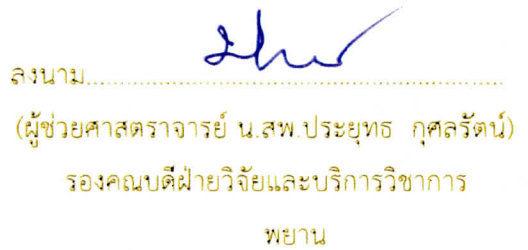 ลงนาม
(ผู้ช่วยศาสตราจารย์ น.สพ.ประยุทธ  กุศลรัตน์)
รองคณบดีฝ่ายวิจัยและบริการวิชาการ
พยาน